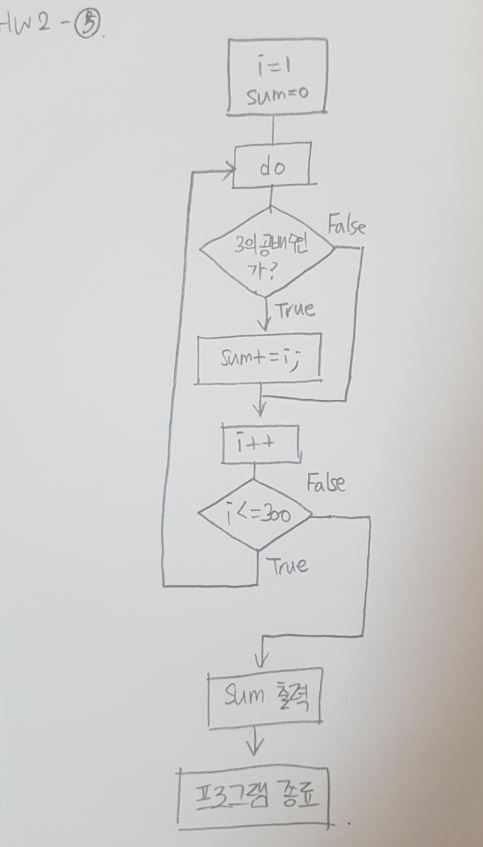 HW2-③.
i=1
sum=0
do
3의공배수인
가?
False
True
sum+=i;
i++
False
i<=300
True
Sum 출력
프로그램 종료.